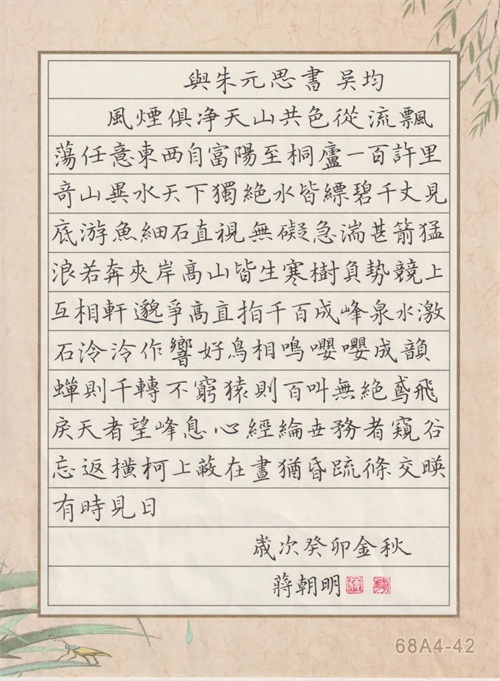 與朱元思書 吳均
風煙俱淨天山共色從流飄
蕩任意東西自富陽至桐廬一百許里
奇山異水天下獨絕水皆縹碧千丈見
底游魚細石直視無礙急湍甚箭猛
浪若奔夾岸高山皆生寒樹負勢競上
互相軒邈爭高直指千百成峰泉水激
石泠泠作響好鳥相鳴嚶嚶成韻
蟬則千轉不窮猿則百叫無絕鳶飛
戾天者望峰息心經綸世務者窺谷
忘返橫柯上蔽在晝猶昏疏條交映
有時見日
歲次癸卯金秋
蔣朝明
68A4-42